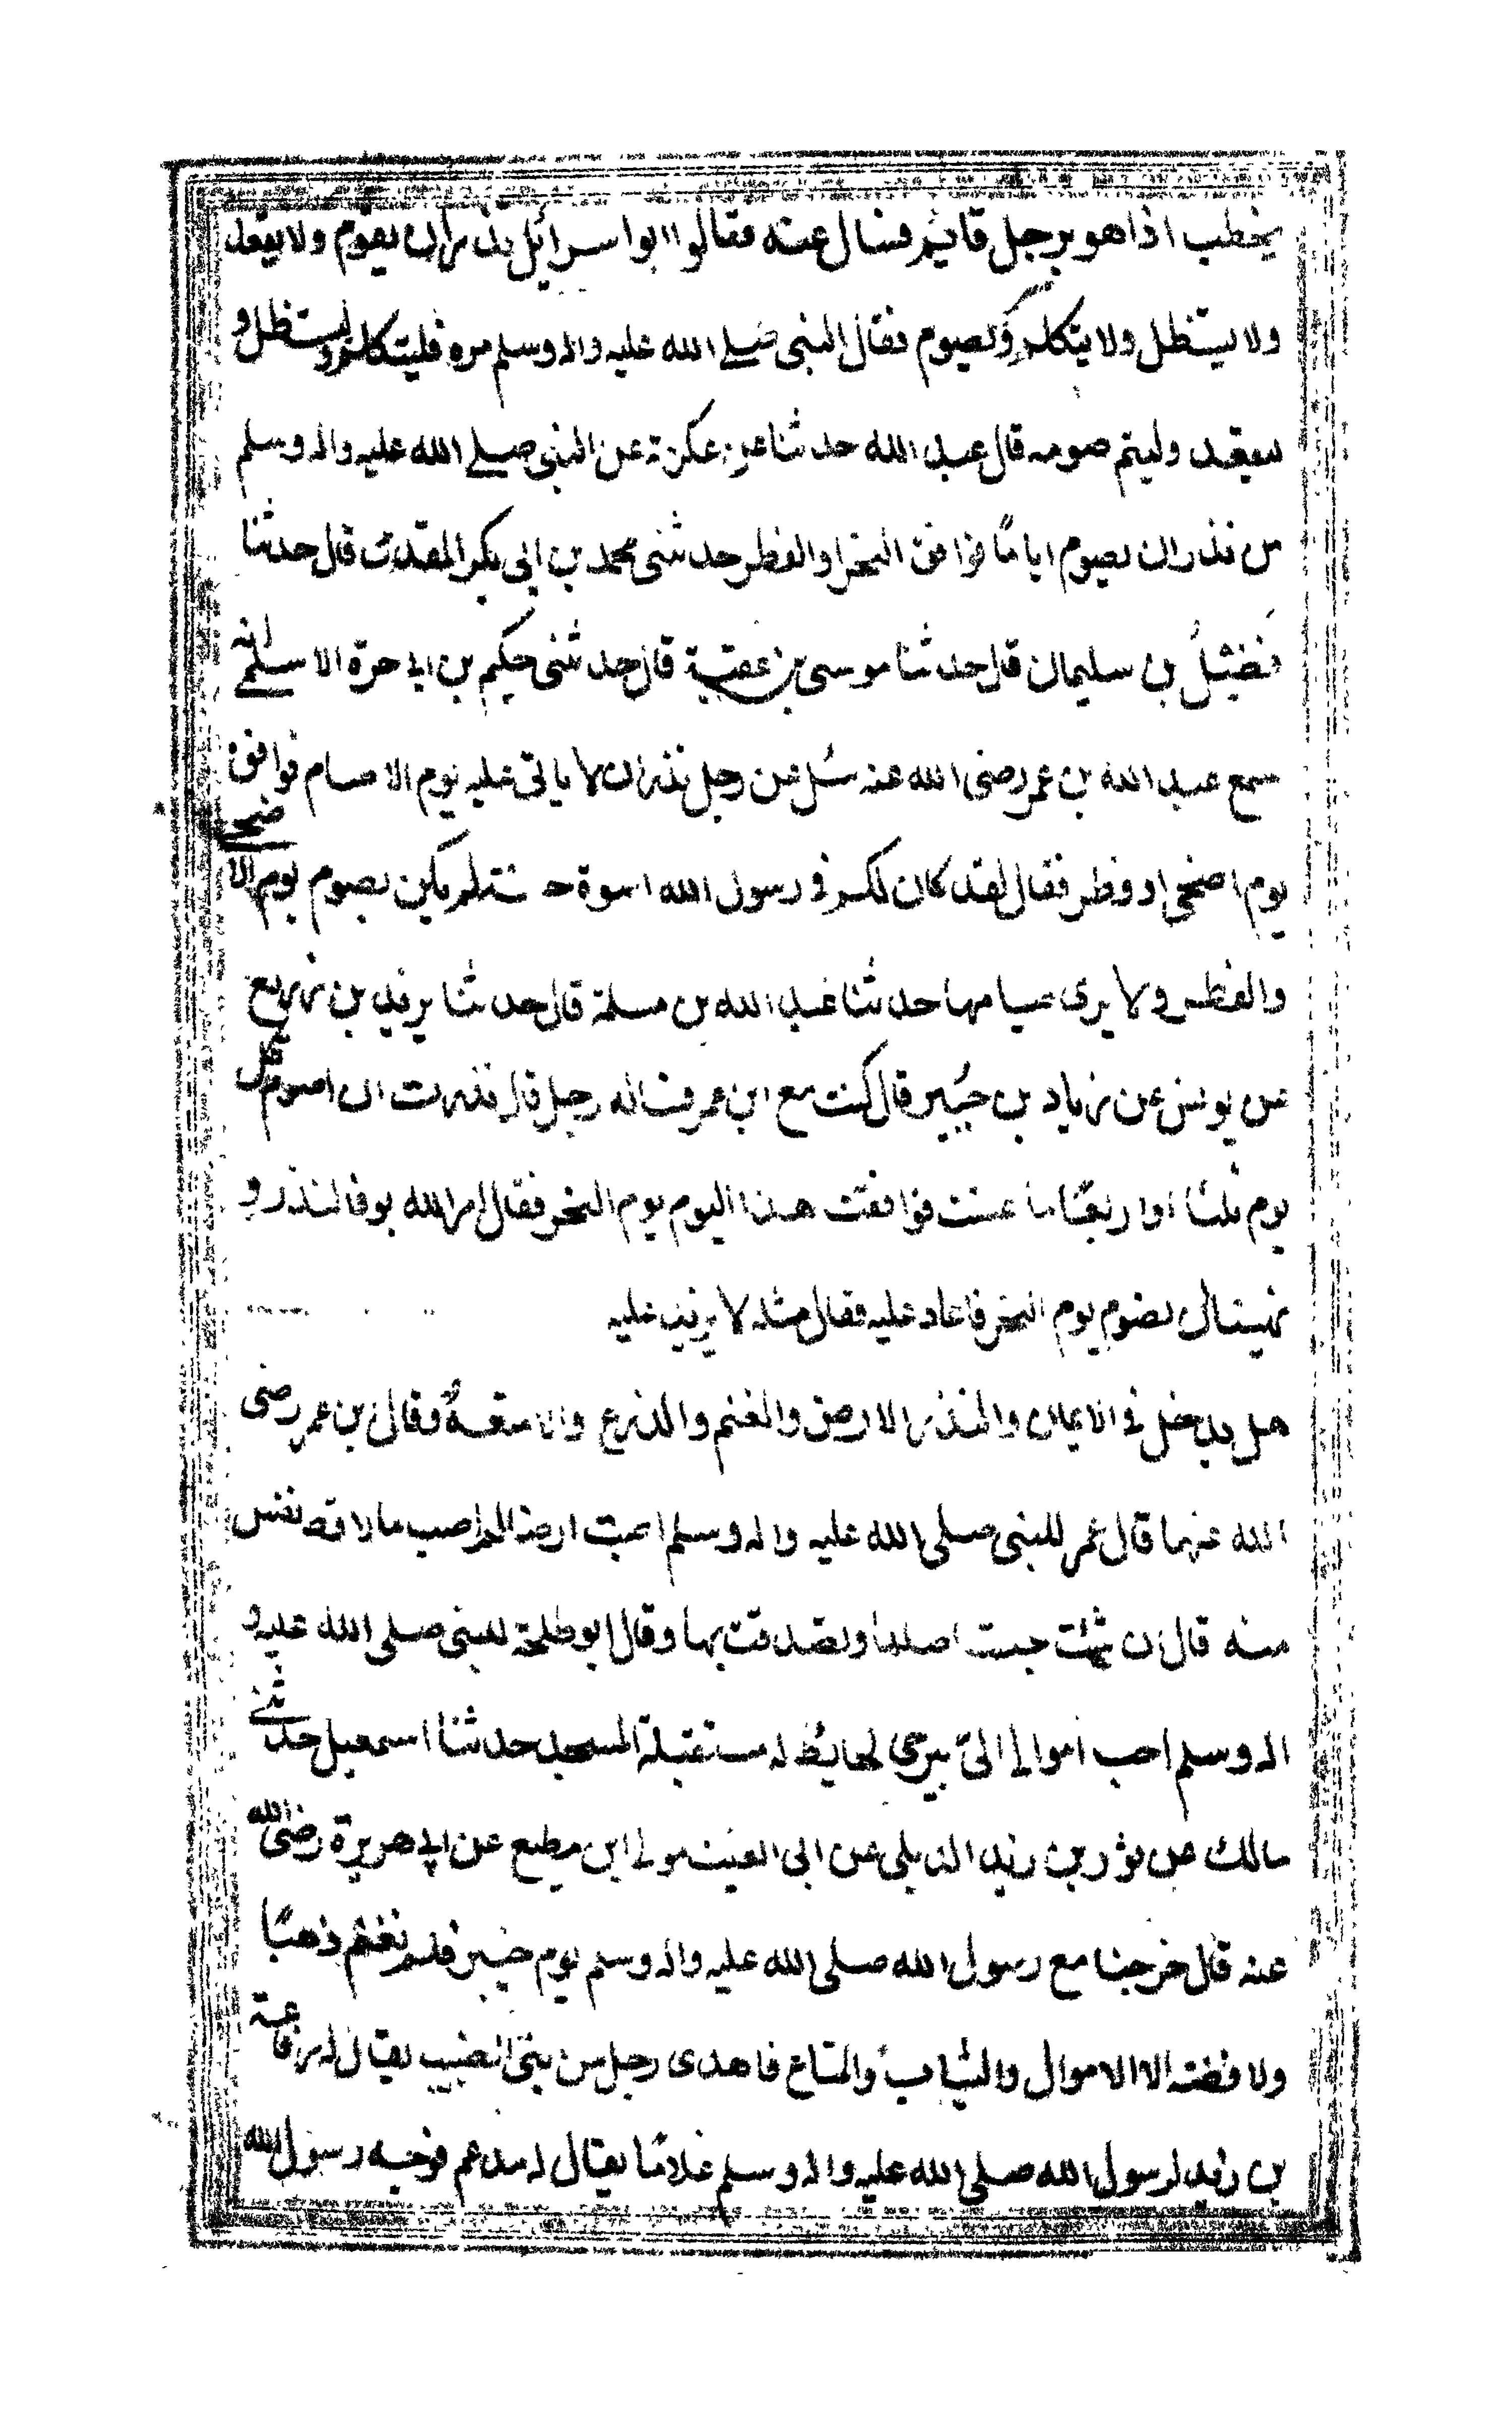 يخطب اذا هو برجل قائم فسال عنه فقالوا ابو اسرائيل نذر ان يقوم ولا يقعد
ولا يستظل ولا يتكلم ويصوم فقال النبى صلى الله عليه واله وسلم مره فليتكلم وليستظل و
ليقعد وليتم صومه قال عبد الوهاب حدثنا عن عكرمة عن النبى صلى الله عليه واله وسلم
من نذر ان يصوم اياما فوافق النحر او الفطر حدثنى محمد بن ابى بكر المقدمى قال حدثنا
فضيل بن سليمان قال حدثنا موسى بن عقبة قال حدثنى حكيم بن ابى حرة الاسلمى انه
سمع عبد الله بن عمر رضى الله عنه سئل عن رجل نذر ان لا ياتى عليه يوم الا صام فوافق
يوم اضحى او فطر فقال لقد كان لكم فى رسول الله اسوة حسنة لم يكن يصوم يوم الاضحى
والفطر ولا يرى صيامهما حدثنا عبد الله بن مسلمة قال حدثنا يزيد بن زريع
عن يونس عن زياد بن جبير قال كنت مع ابن عمر فساله رجل قال نذرت ان اصوم كل
يوم ثلثا او اربعا ما عشت فوافقت هذا اليوم يوم النحر فقال امر الله بوفا النذر و
نهينا ان نصوم يوم النحر فاعاد عليه فقال مثله لا يزيد عليه
هل يدخل فى الايمان والنذر الارض والغنم والزرع والامتعة وقال بن عمر رضى
الله عنهما قال عمر للنبى صلى الله عليه واله وسلم اصبت ارضا لم اصب مالا قط نفس
منه قال ان شئت حبست اصلها وتصدقت بها وقال ابو طلحة للنبى صلى الله عليه و
اله وسلم احب اموالى الىّ بيرحى لحائط له مستقبلة المسجد حدثنا اسمعيل حدثنى
مالك عن ثور بن زيد الديلى عن ابى الغيث مولى ابن مطيع عن ابى هريرة رضى الله
عنه قال خرجنا مع رسول الله صلى الله عليه واله وسلم يوم خيبر فلم نغنم ذهبا
ولا فضة الا الاموال والثياب والمتاع فاهدى رجل من بنى الضبيب يقال له رفاعة
بن زيد لرسول الله صلى الله عليه واله وسلم غلاما يقال له مدعم فوجه رسول الله